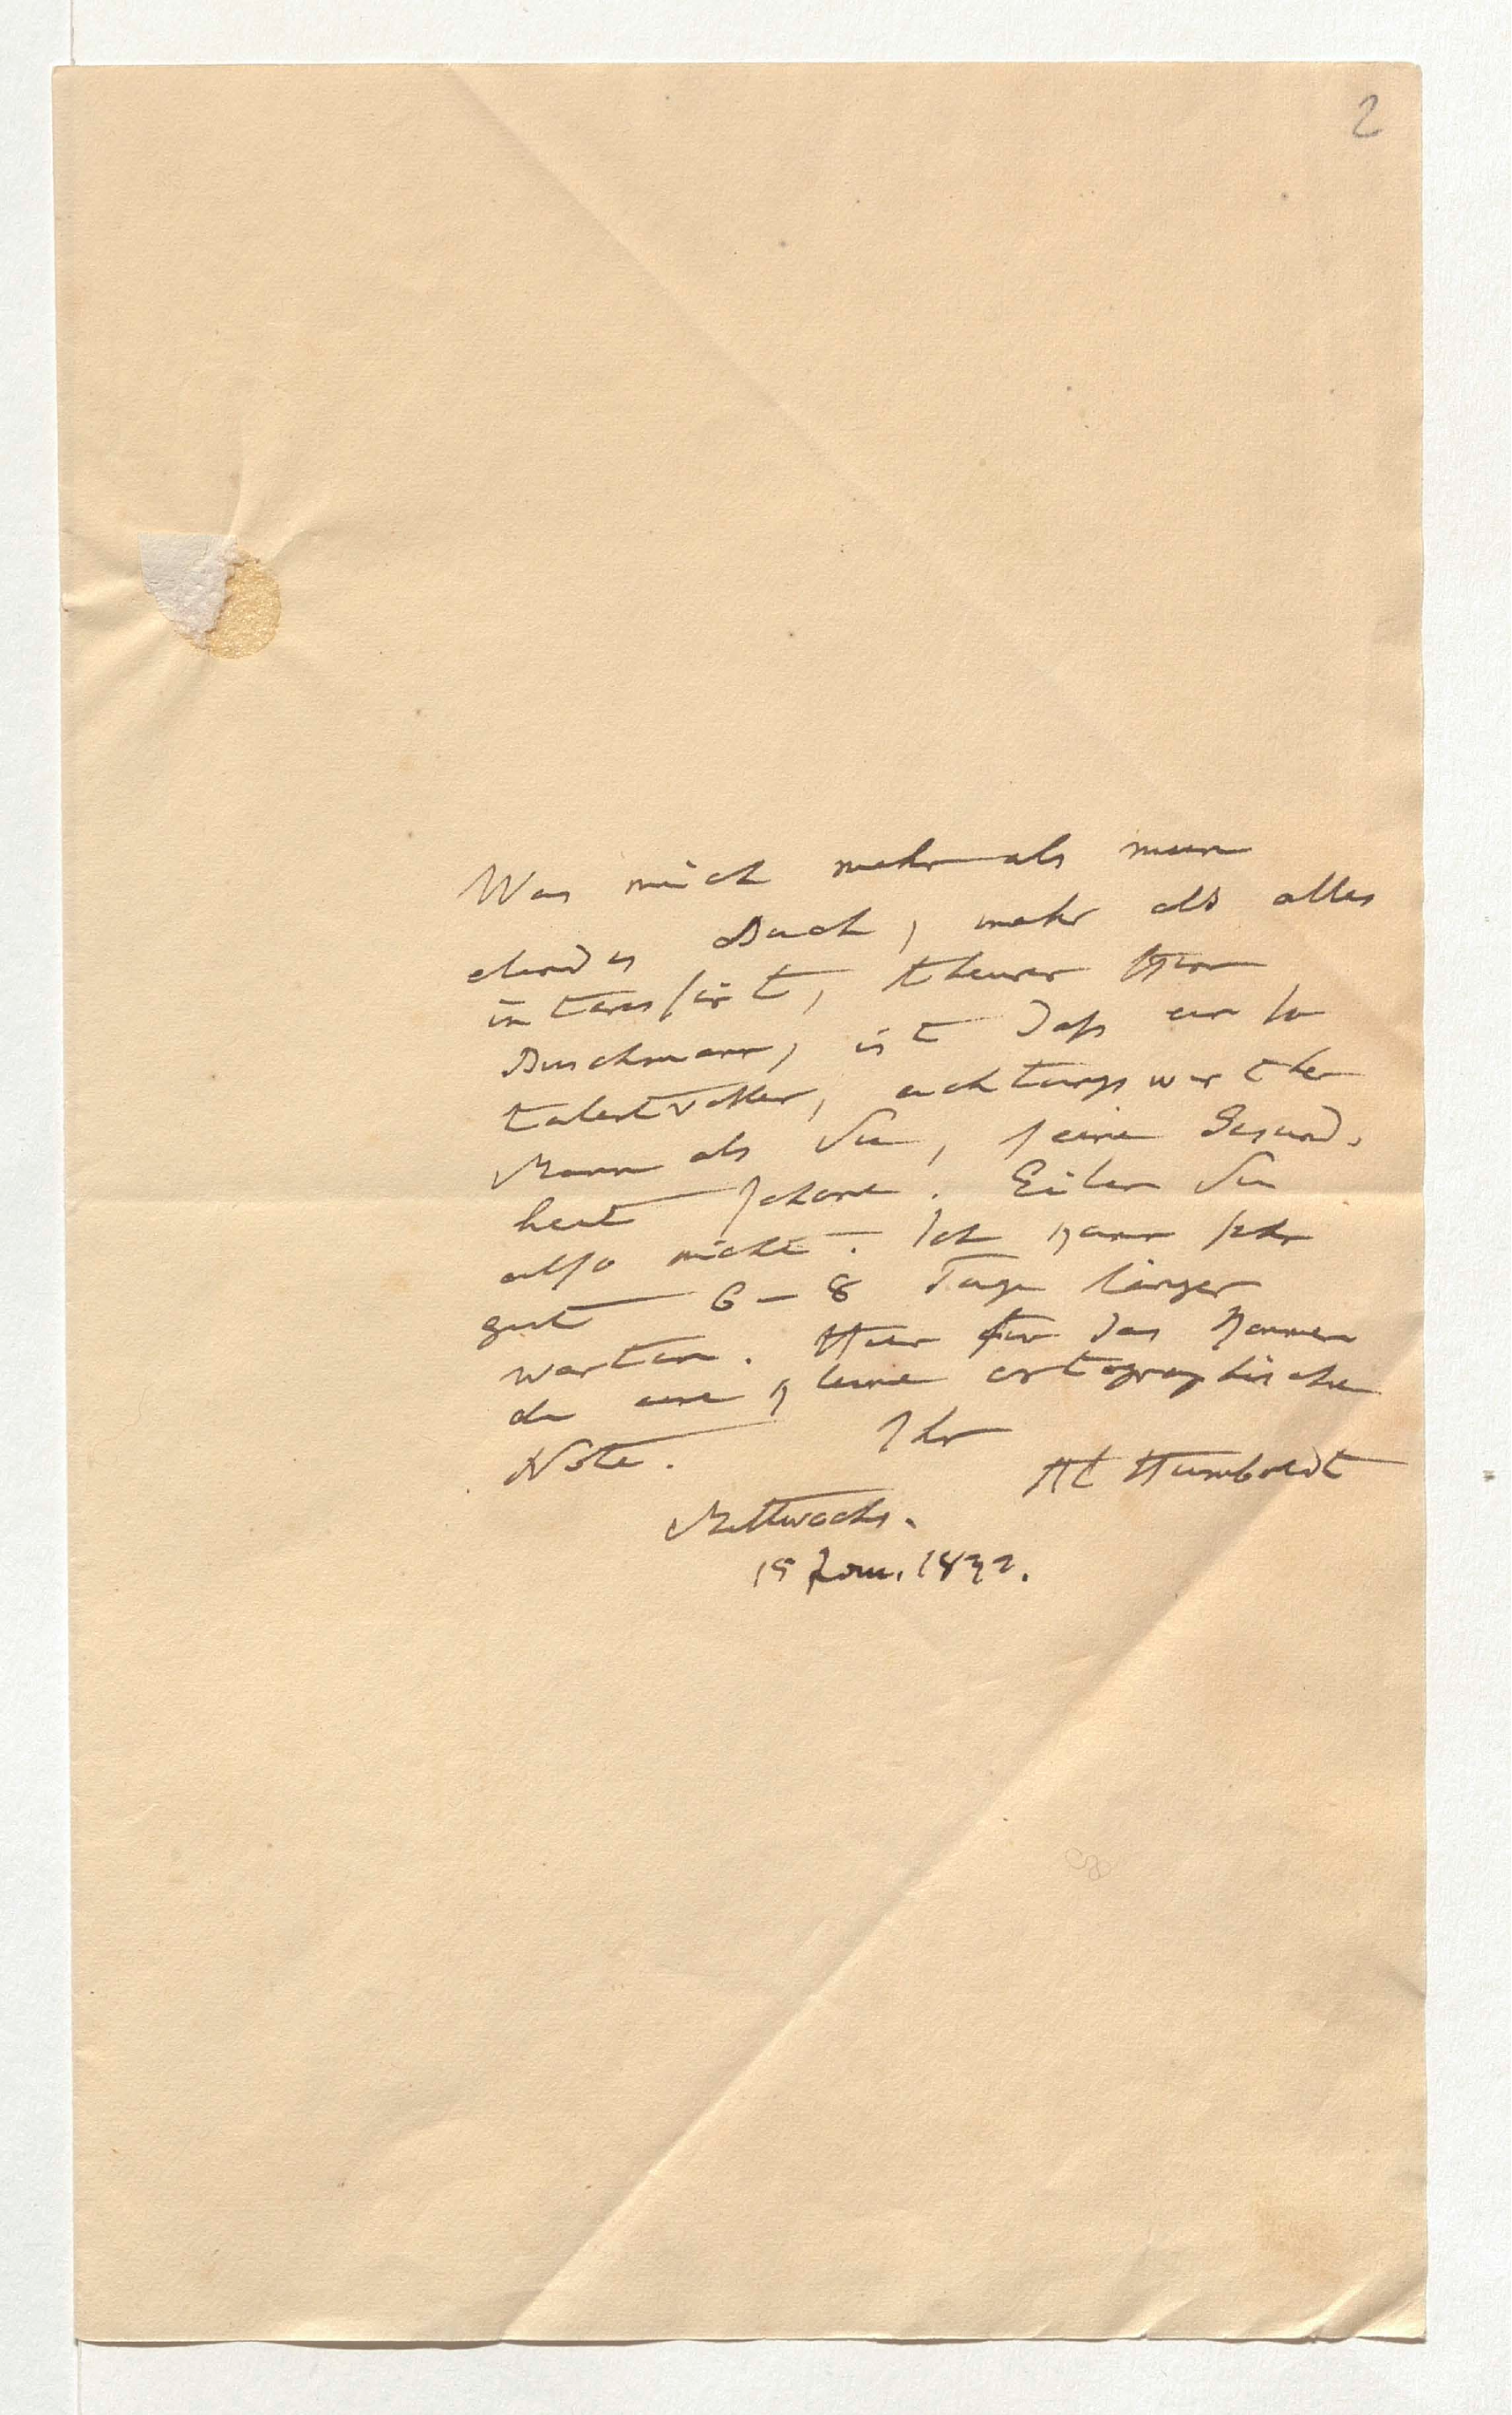 2
Was mich mehr als mein
elendes Buch, mehr als alles
interessirt, theurer Herr
Buschmann, ist daß ein so
talentvoller, achtungswerther
Mann als Sie, seine Gesund-
heit schone. Eilen Sie
also nicht. Ich kann sehr
gut 6–8 Tage länger
warten. Hier für das Kommen
de eine kleine ortographische
Note. Ihr
Al Humboldt
Mittwochs.
Jan. 1832.